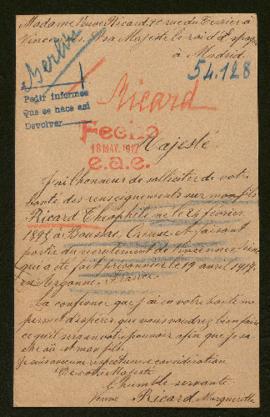 Madame Veuve Ricard, rue du Terrier à
Vincennes. A sa Majesté le roi d'Espagne
à Madrid
Berlin
54.128
Pedir informes
que se hace así
Devolver
Ricard
Fecho
18 MAY. 1917
e.a.e.
Majesté
J'ai l'honneur de solliciter de votre
bonté des renseignements sur mon fils
Ricard Théophile né le 26 février
1893 à Boussac, Creuse, et faisant
partie du recrutement de
qui a été fait prisonnier le 19 avril 1917
en
La confiance que j'ai en votre bonté me
permet d'espérer que vous voudrez bien faire
ce qu'il sera en votre pouvoir afin que je sache
où est mon fils.
Je suis avec respectueuse considération
De votre Majesté
L'humble servante
Veuve Ricard Marguerite